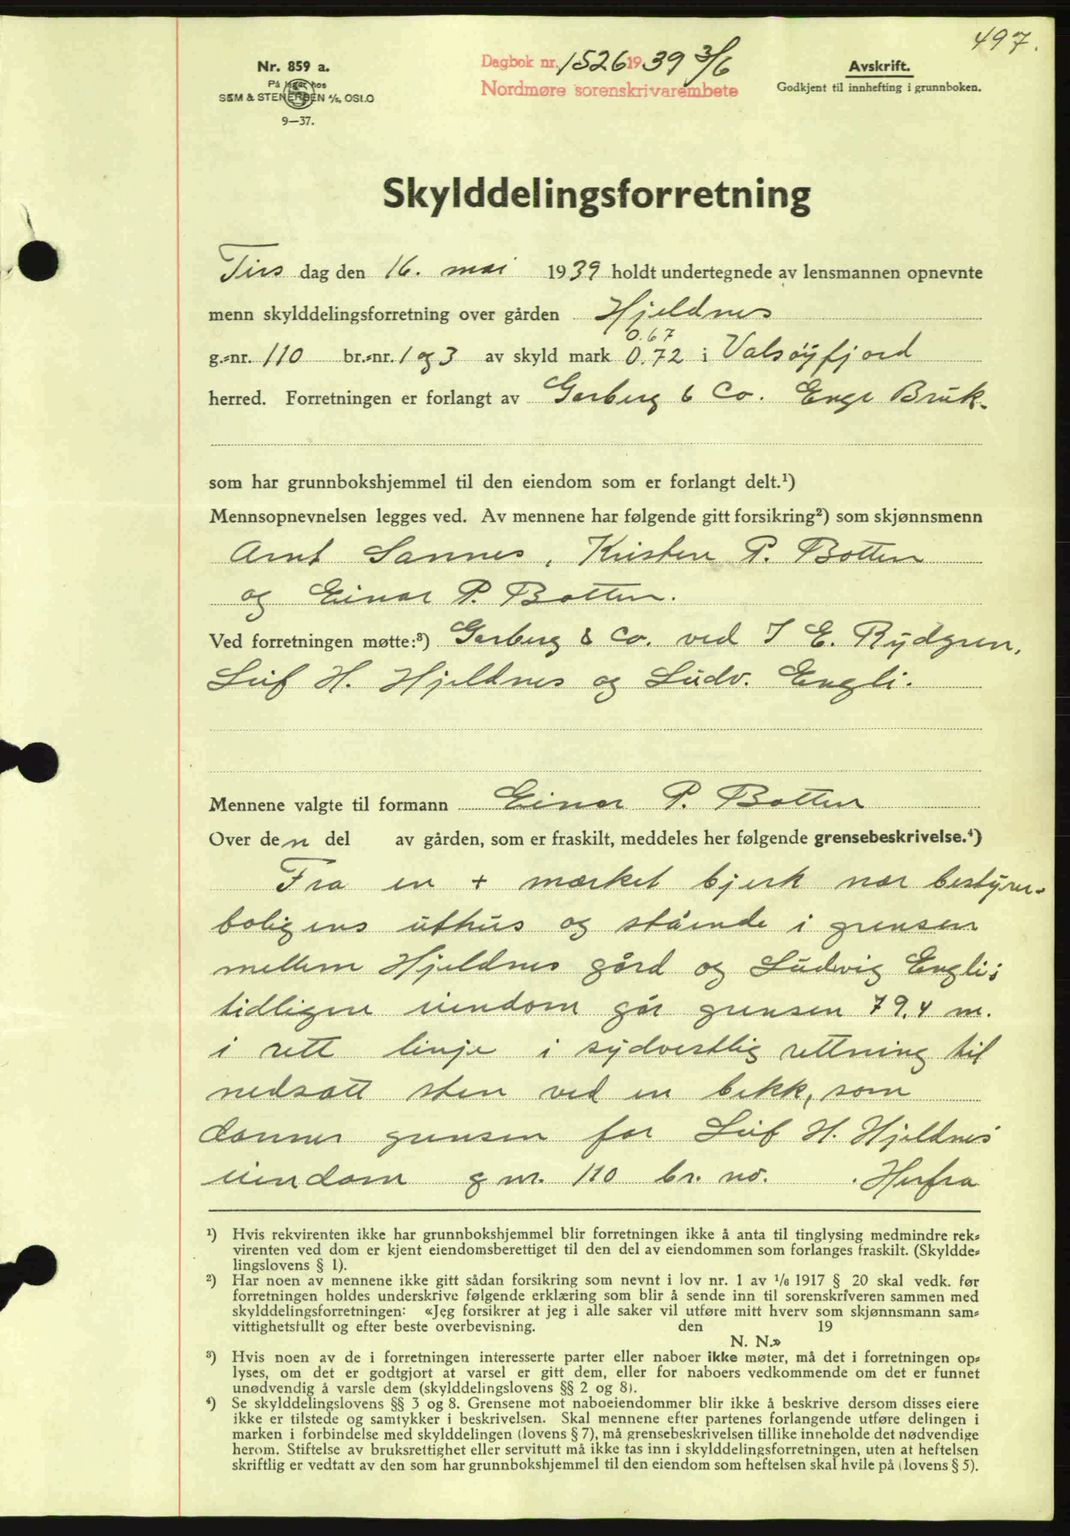 497.
Nr. 859 a.
På lager hos
SEM & STENERSEN A/S, OSLO
9—37.
Dagbok nr. 1526 1939 3/6
Nordmøre sorenskrivarembete
Avskrift.
Godkjent til innhefting i grunnboken.
Skylddelingsforretning
Tirs dag den 16. mai 1939 holdt undertegnede av lensmannen opnevnte
menn skylddelingsforretning over gården Hjeldnes
0.67
g.-nr. 110 br.-nr. 1 og 3 av skyld mark 0.72 i Valsøyfjord
herred. Forretningen er forlangt av Garberg & Co. Enge Bruk.
som har grunnbokshjemmel til den eiendom som er forlangt delt.¹)
Mennsopnevnelsen legges ved. Av mennene har følgende gitt forsikring²) som skjønnsmenn
Arnt Sannes, Kristen P. Botten
og Einar P. Botten.
Ved forretningen møtte:³) Garberg & Co. ved I E. Rydgren,
Leif H. Hjeldnes og Ludv. Engli.
Mennene valgte til formann Einar P. Botten
Over den del av gården, som er fraskilt, meddeles her følgende grensebeskrivelse.⁴)
Fra en + mærket bjerk nær bestyrer-
boligens uthus og stående i grensen
mellem Hjeldnes gård og Ludvig Engli's
tidligere eiendom går grensen 79,4 m.
i rett linje i sydvestlig rettning til
nedsatt sten ved en bekk, som
danner grensen for Leif H. Hjeldnes'
eiendom g nr. 110 br. no. . Herfra
¹) Hvis rekvirenten ikke har grunnbokshjemmel blir forretningen ikke å anta til tinglysing medmindre rek-
virenten ved dom er kjent eiendomsberettiget til den del av eiendommen som forlanges fraskilt. (Skyldde-
lingslovens § 1).
²) Har noen av mennene ikke gitt sådan forsikring som nevnt i lov nr. 1 av 1/6 1917 § 20 skal vedk. før
forretningen holdes underskrive følgende erklæring som blir å sende inn til sorenskriveren sammen med
skylddelingsforretningen: «Jeg forsikrer at jeg i alle saker vil utføre mitt hverv som skjønnsmann sam-
vittighetsfullt og efter beste overbevisning. den 19
N. N.»
³) Hvis noen av de i forretningen interesserte parter eller naboer ikke møter, må det i forretningen op-
lyses, om det er godtgjort at varsel er gitt dem, eller for naboers vedkommende om det er funnet
unødvendig å varsle dem (skylddelingslovens §§ 2 og 8).
⁴) Se skylddelingslovens §§ 3 og 8. Grensene mot naboeiendommer blir ikke å beskrive dersom disses eiere
ikke er tilstede og samtykker i beskrivelsen. Skal mennene efter partenes forlangende utføre delingen i
marken i forbindelse med skylddelingen (lovens § 7), må grensebeskrivelsen tillike inneholde det nødvendige
herom. Stiftelse av bruksrettighet eller servitutt må ikke tas inn i skylddelingsforretningen, uten at heftelsen
skriftlig er vedtatt av den som har grunnbokshjemmel til den eiendom som heftelsen skal hvile på (lovens § 5).